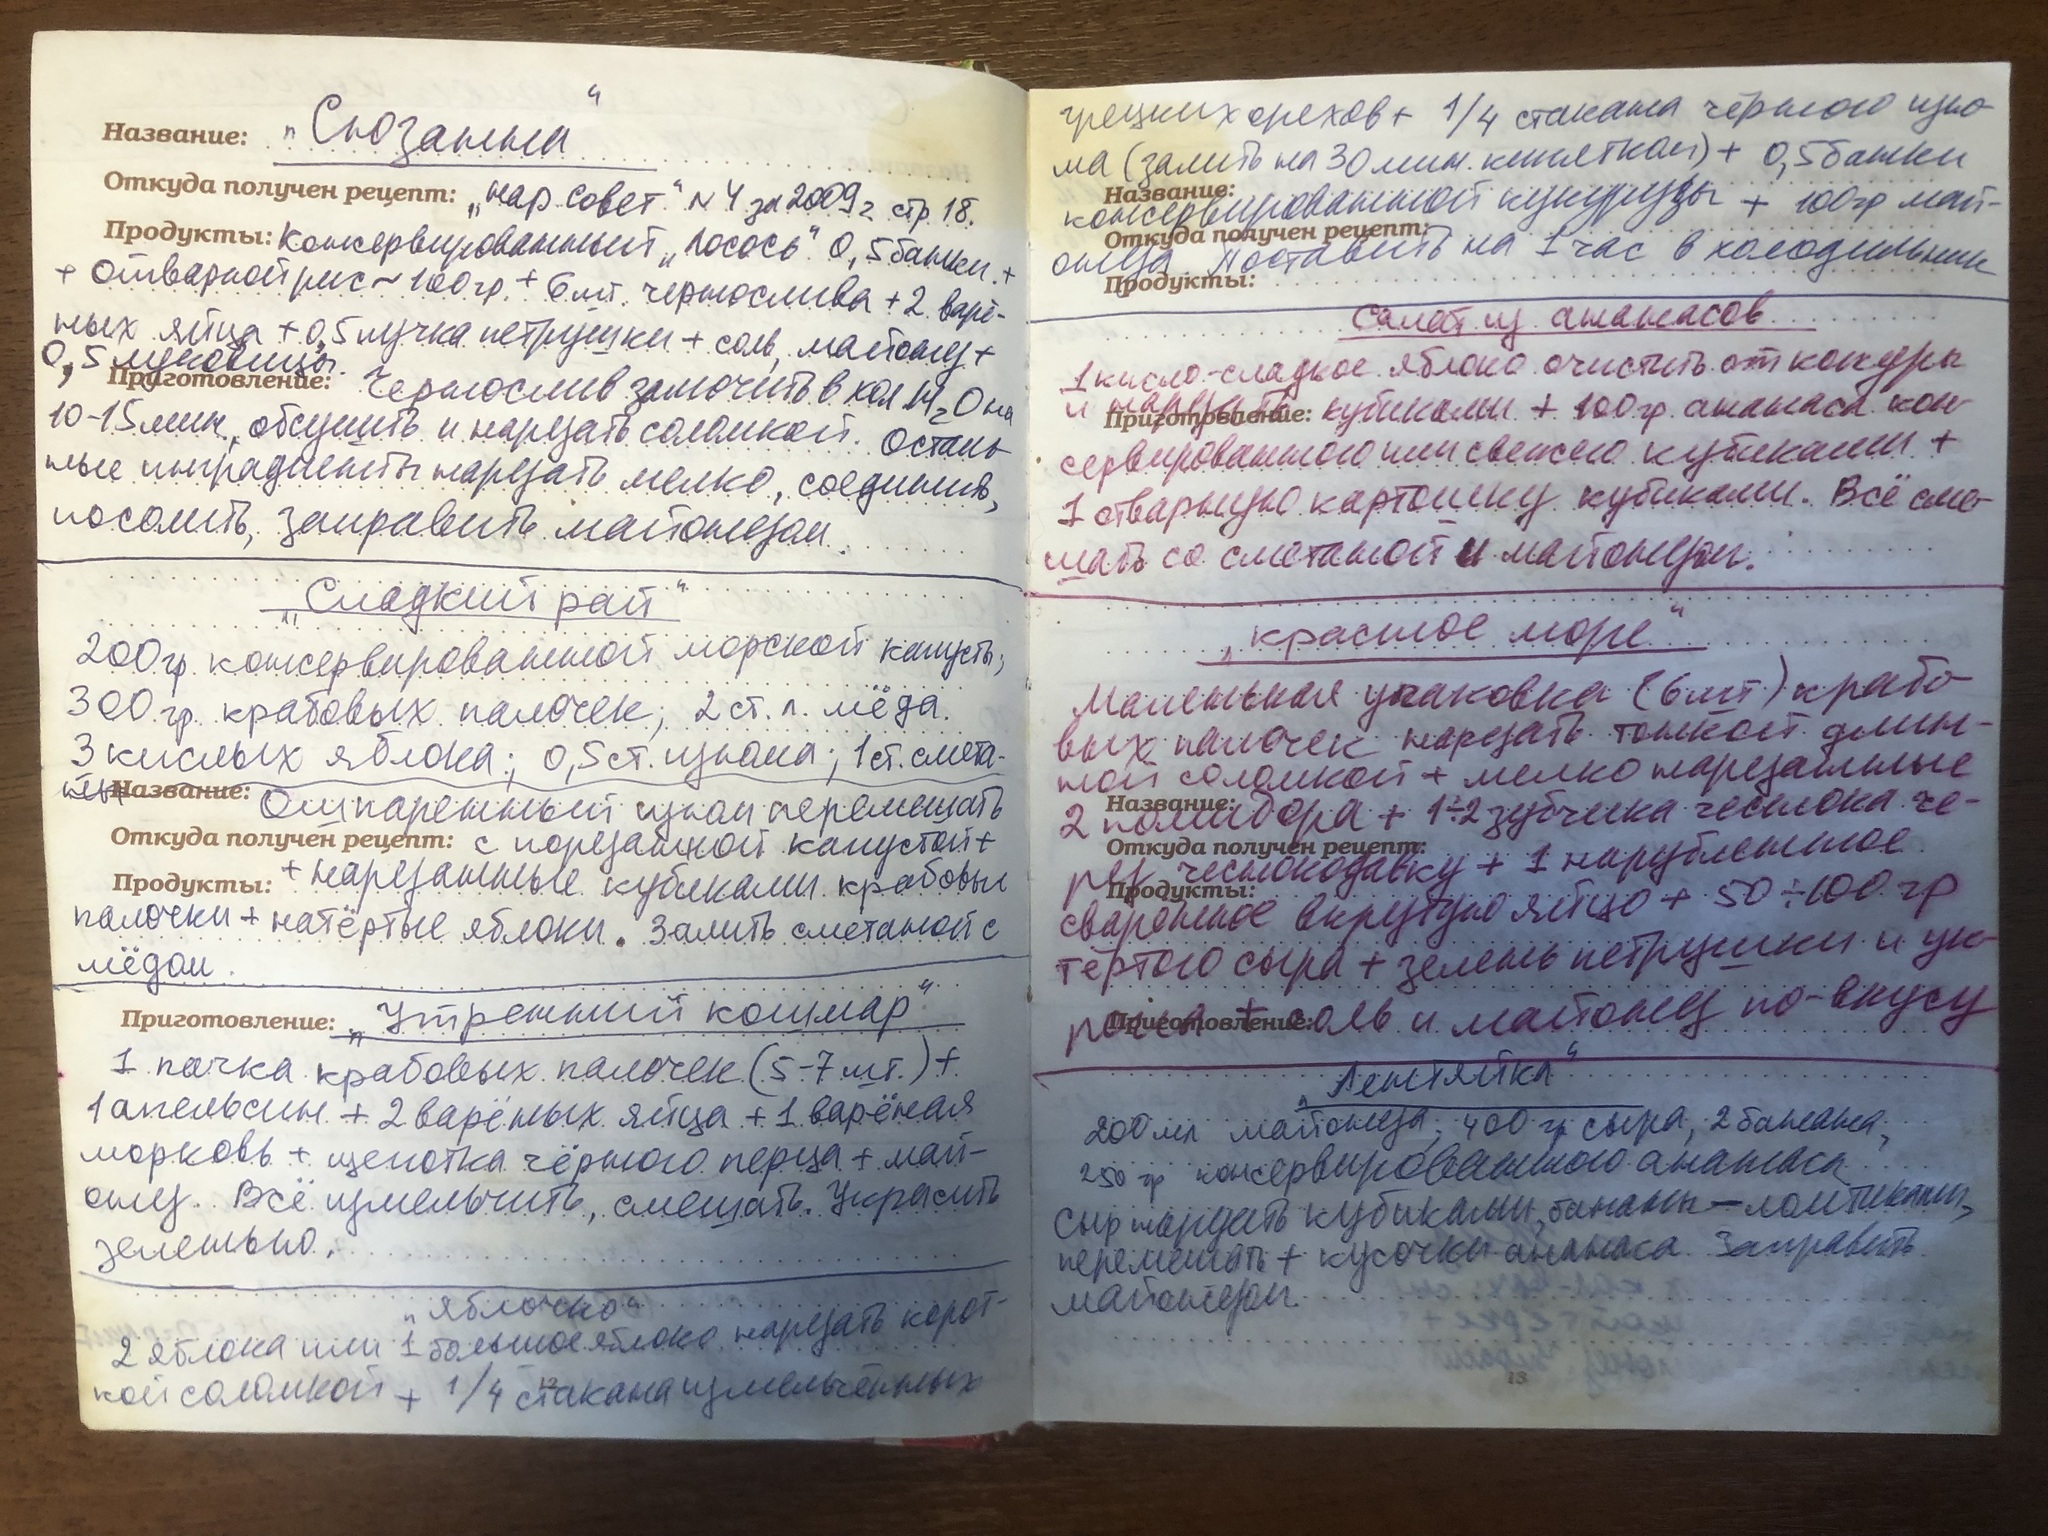 Название: „Сюзанна“
Откуда получен рецепт: „Нар. совет“ №4 за 2009г стр. 18.
Продукты: Консервированный „Лосось“ 0,5 банки +
+ отварной рис ~ 100 гр. + 6 шт. чернослива + 2 варё-
ных яйца + 0,5 пучка петрушки + соль, майонез +
0,5 луковицы.
Приготовление: Чернослив замочить в хол H2O на
10-15 мин, обсушить и нарезать соломкой. Осталь-
ные ингредиенты нарезать мелко, соединить,
посолить, заправить майонезом.
„Сладкий рай“
200 гр. консервированной морской капусты;
300 гр. крабовых палочек; 2 ст. л. мёда.
3 кислых яблока; 0,5 ст. изюма; 1 ст. смета-
ны
Название: Ошпаренный изюм перемешать
Откуда получен рецепт: с порезанной капустой +
Продукты: + нарезанные кубиками крабовые
палочки + натёртые яблоки. Залить сметаной с
мёдом.
Приготовление: „Утренний кошмар“
1 пачка крабовых палочек (5-7 шт.) +
1 апельсин + 2 варёных яйца + 1 варёная
морковь + щепотка чёрного перца + май-
онез. Всё измельчить, смешать. Украсить
зеленью.
„Яблочно“
2 яблока или 1 большое яблоко нарезать корот-
кой соломкой + 1/4 стакана измельчённых
12
грецких орехов + 1/4 стакана чёрного изю-
ма (залить на 30 мин. кипятком) + 0,5 банки
Название:
консервированной кукурузы + 100 гр май-
Откуда получен рецепт:
онеза. Поставить на 1 час в холодильник
Продукты:
Салат из ананасов
1 кисло-сладкое яблоко очистить от кожуры
и нарезать кубиками + 100 гр. ананаса кон-
Приготовление:
сервированного или свежего кубиками +
1 отварную картошку кубиками. Всё сме-
шать со сметаной и майонезом.
„Красное море“
Маленькая упаковка (6 шт) крабо-
вых палочек нарезать тонкой длин-
ной соломкой + мелко нарезанные
Название:
2 помидора + 1÷2 зубчика чеснока че-
Откуда получен рецепт:
рез чеснокодавку + 1 нарубленное
Продукты:
сваренное вкрутую яйцо + 50÷100 гр
тёртого сыра + зелень петрушки и ук-
ропа + соль и майонез по-вкусу
Приготовление:
„Лентяйка“
200 мл майонеза, 400 гр сыра, 2 банана,
250 гр консервированного ананаса
Сыр нарезать кубиками, бананы – ломтиками,
перемешать + кусочки ананаса. Заправить
майонезом.
13